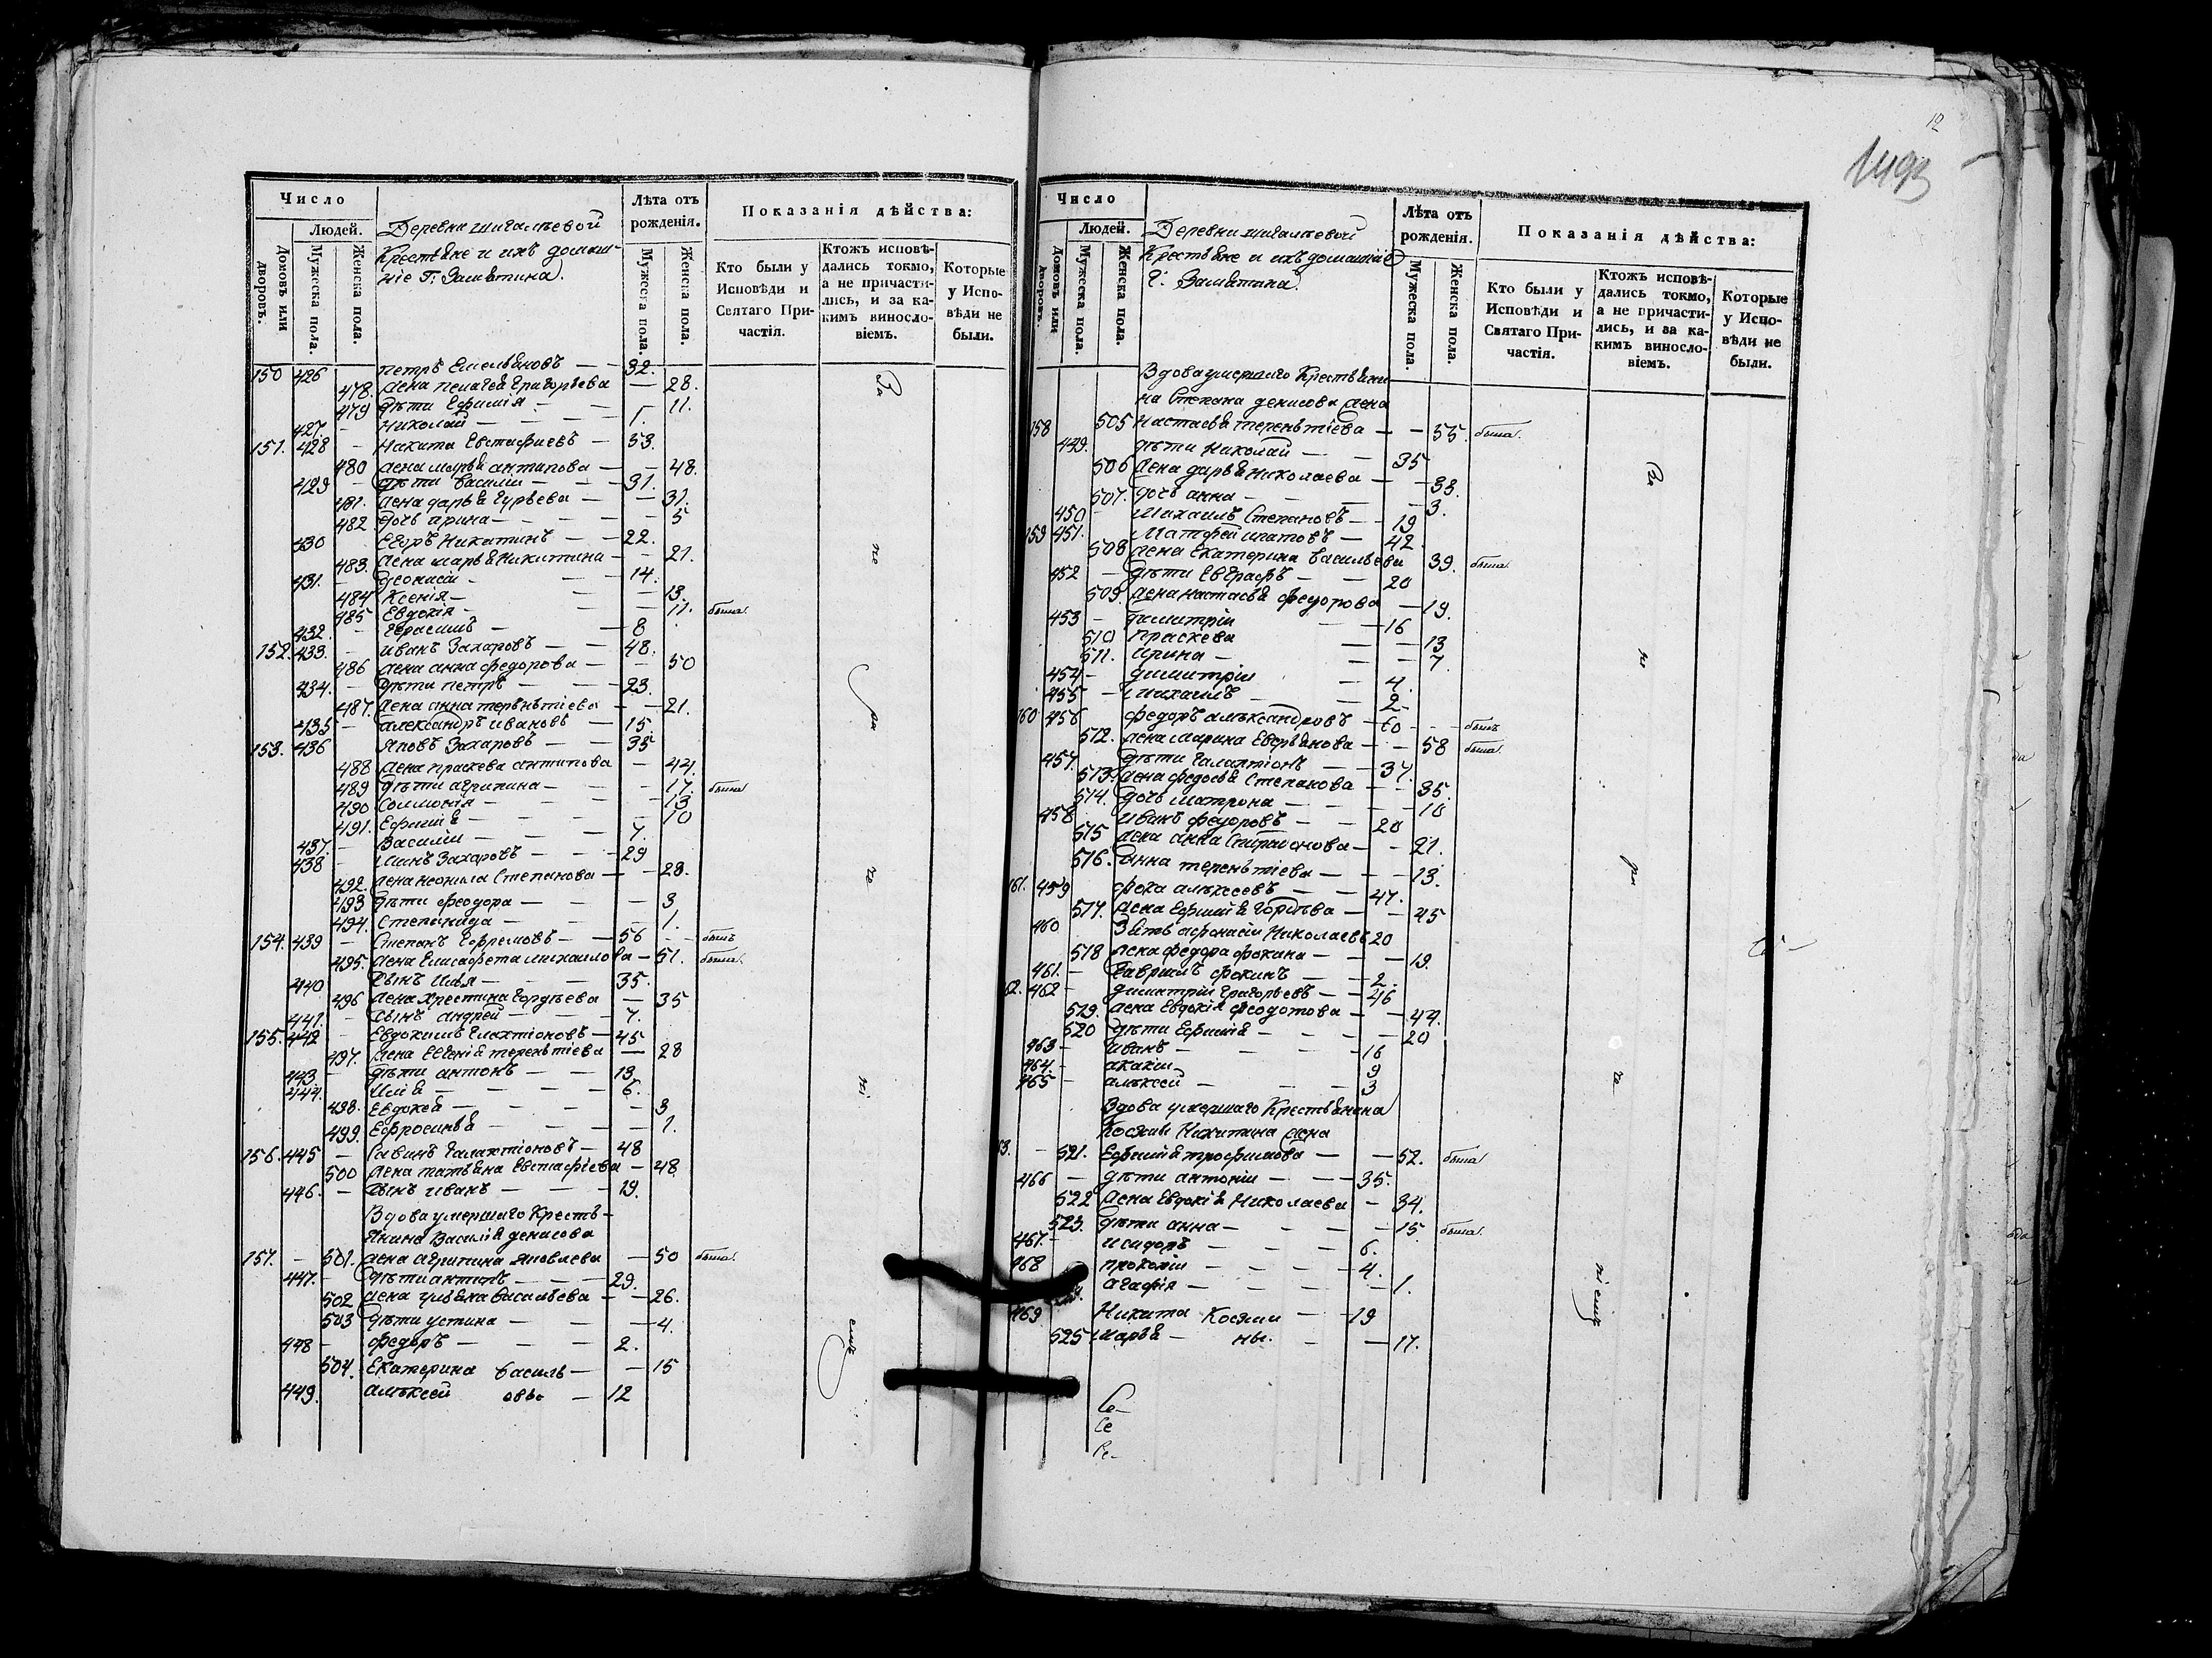 Число
Людей.
Домовъ или дворовъ.
Мужеска пола.
Женска пола.
Деревни
Крестьяне и ихъ домаш-
ніе Г: Замятина.
Лѣта отъ рожденія.
Мужеска пола.
Женска пола.
Показанія дѣйства:
Кто были у Исповѣди и Святаго При-частія.
Ктожъ исповѣ-дались токмо, а не причасти-лись, и за ка-кимъ винословіемъ.
Которые у Испо-вѣди не были.
150 426 петръ Емельяновъ — — 32.
478. жена пелагея Григорьева — 28.
479 дѣти Ефимія — — 11.
427. — Николай — — 1.
151. 428 — Никита Евстафиевъ — 53.
480 жена марья антипова — — 48.
429 — дѣти Василій — — 31.
481. жена дарья Гурьева — — 31.
482 дочь арина — — — 5
430 Егоръ Никитинъ — — 22.
483. жена марья Никитина — — 21.
431. — — — 14.
484 Ксенія — — — 13.
485 Евдокія — — — 11. была
432. — Герасимъ — — 8
152. 433. — иванъ Захаровъ — — 48.
486 жена анна федорова — — 50
434. — дѣти петръ — — 23.
487. жена анна терентіева — — 21.
435 — александръ ивановъ — 15
153. 436 яковъ Захаровъ — — 35
488 жена праскева антипова — 44.
489 дѣти агрипина — — 17. была
490 Соломонія — — — 13
491. Ефимія — — — 10
437. — Василій — — 7.
438 — Захаровъ — — 29
492. жена неонила Степанова — — 28.
493 дѣти феодора — — — 3
494. Степанида — — — 1.
154. 439 — Степанъ Ефремовъ — — 56 — — былъ
495. жена Елисафета михаилова — 51. была.
440 сынъ Илья — — 35.
496 жена Христина Гордѣева — 35
441. — сынъ андрей — — 7.
155. 442 — Евдокимъ Галактіоновъ — 45
497. жена Евгенія терентіева — 28
443 — дѣти антонъ — — 13.
444. Илія — — — 6.
498. Евдокея — — — 3
499. Ефросинья — — — 1.
156. 445 — Савинъ Галактіоновъ — 48
500 жена татьяна Евстафіева — 48.
446. — сынъ иванъ — — 19.
Вдова умершаго Кресть-
янина Василія денисова
157. — 501. жена агрипина яковлева — 50 была.
447. — дѣти антипъ — — 29.
502 жена ульяна Васильева — — 26.
503 дѣти устина — — — 4.
448 — федоръ — — 2.
504. Екатерина Василь — — 15
449. алексей евы — 12
За
не
ра
че
ні
емъ
12
Число
Людей.
Домовъ или дворовъ.
Мужеска пола.
Женска пола.
Деревни
Крестьяне и ихъ домашніе
Г: Замятина.
Лѣта отъ рожденія.
Мужеска пола.
Женска пола.
Показанія дѣйства:
Кто были у Исповѣди и Святаго При-частія.
Ктожъ исповѣ-дались токмо, а не причасти-лись, и за ка-кимъ винословіемъ.
Которые у Испо-вѣди не были.
Вдова умершаго Крестьяни
на Степана денисова жена
158 505 Настасья терентіева — — 55. была.
449. дѣти Николай — — 35
506 жена дарья Николаева — — 33.
507. дочь анна — — — 3.
450 — Михаилъ Степановъ — — 19
159 451. Матфей — 42
508 жена Екатерина Васильева 39. была.
452 — дѣти Евграфъ — — 20
509. жена настасья федорова — 19.
453 — димитрій — 16
510 праскева — — 13
511. Ирина — — — 7.
454 — димитрій — 4.
455 — михаилъ — 2 —
160 456 федоръ алѣксандровъ — 60 — — былъ
512. жена марина Евсевьянова — — 58 была.
457. дѣти Галактіонъ — — 37.
513. жена федосья Степанова — — 35.
514. дочь матрона — — — 10
458. иванъ федоровъ — — 20
515 жена анна — — 21.
516. анна терентіева — — 13.
161. 459 фока алѣксеевъ — — 47.
517. жена Ефимія Гордѣева — — 45
460 Зять афонасій Николаевъ 20
518 жена федора фокина — — — 19.
461. — Гавриилъ фокинъ — — 2.
62. 462 — димитрій Григорьевъ — — 46
519. жена Евдокія феодотова — — 44.
520 дѣти Ефимія — — — 20
463 — иванъ — — — 16
464. — акакій — 9
465 — алѣксей — — 3
Вдова умершаго Крестьянина
Космы Никитина жена
3. — 521. Ефимія трофимова — — 52. была.
466 — дѣти антоній — — 35.
522 жена Евдокія Николаева — 34.
523. дѣти анна — — — 15. была.
467. — исидоръ — — — 6.
468 прокопій — — — 4.
агафія — — — 1.
469 Никита Косми — 19
525 марья — ны. — — 17.
За
не
ра
че
ніемъ
Се-
Се
Ре-